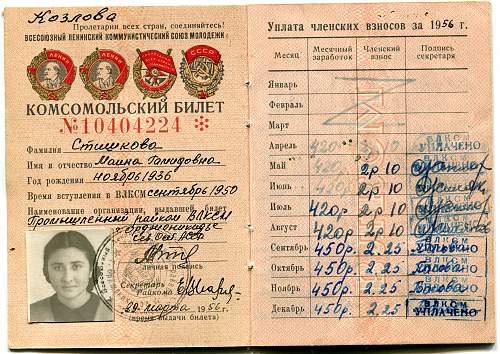 Козлова
Пролетарии всех стран, соединяйтесь!
ВСЕСОЮЗНЫЙ ЛЕНИНСКИЙ КОММУНИСТИЧЕСКИЙ СОЮЗ МОЛОДЕЖИ
ЛЕНИН ЛЕНИН СССР
КОМСОМОЛЬСКИЙ БИЛЕТ
№10404224
Фамилия Стишкова
Имя и отчество
Год рождения ноябрь 1936
Время вступления в ВЛКСМ сентябрь 1950
Наименование организации, выдавшей билет
Промышленный райком ВЛКСМ
г. Орджоникидзе
Сев. Осет. АССР
личная подпись
Секретарь
Райкома
29 марта 1956 г.
(время выдачи билета)
Уплата членских взносов за 1956 г.
Месяц Месячный заработок Членский взнос Подпись секретаря
Январь
Февраль
Март
Апрель 420р ВЛКСМ УПЛАЧЕНО
Май 420 2р 10
Июнь 420р 2р 10
Июль 420р 2р 10
Август 420р 2р 10
Сентябрь 450р. 2.25 ВЛКСМ
Октябрь 450р. 2.25
Ноябрь 450р. 2.25
Декабрь 450р. 2.25 ВЛКСМ УПЛАЧЕНО